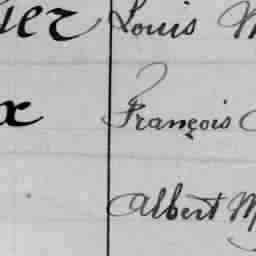 Louis M
François
Albert M